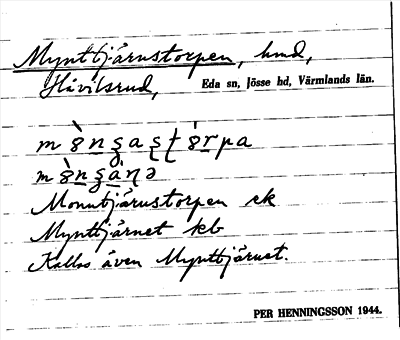 Mynttjärnstorpen, hmd,
Hävilsrud, Eda sn, Jösse hd, Värmlands län.
Monntjärnstorpen ek
Mynttjärnet kb
Kallas även Mynttjärnet.
PER HENNINGSSON 1944.